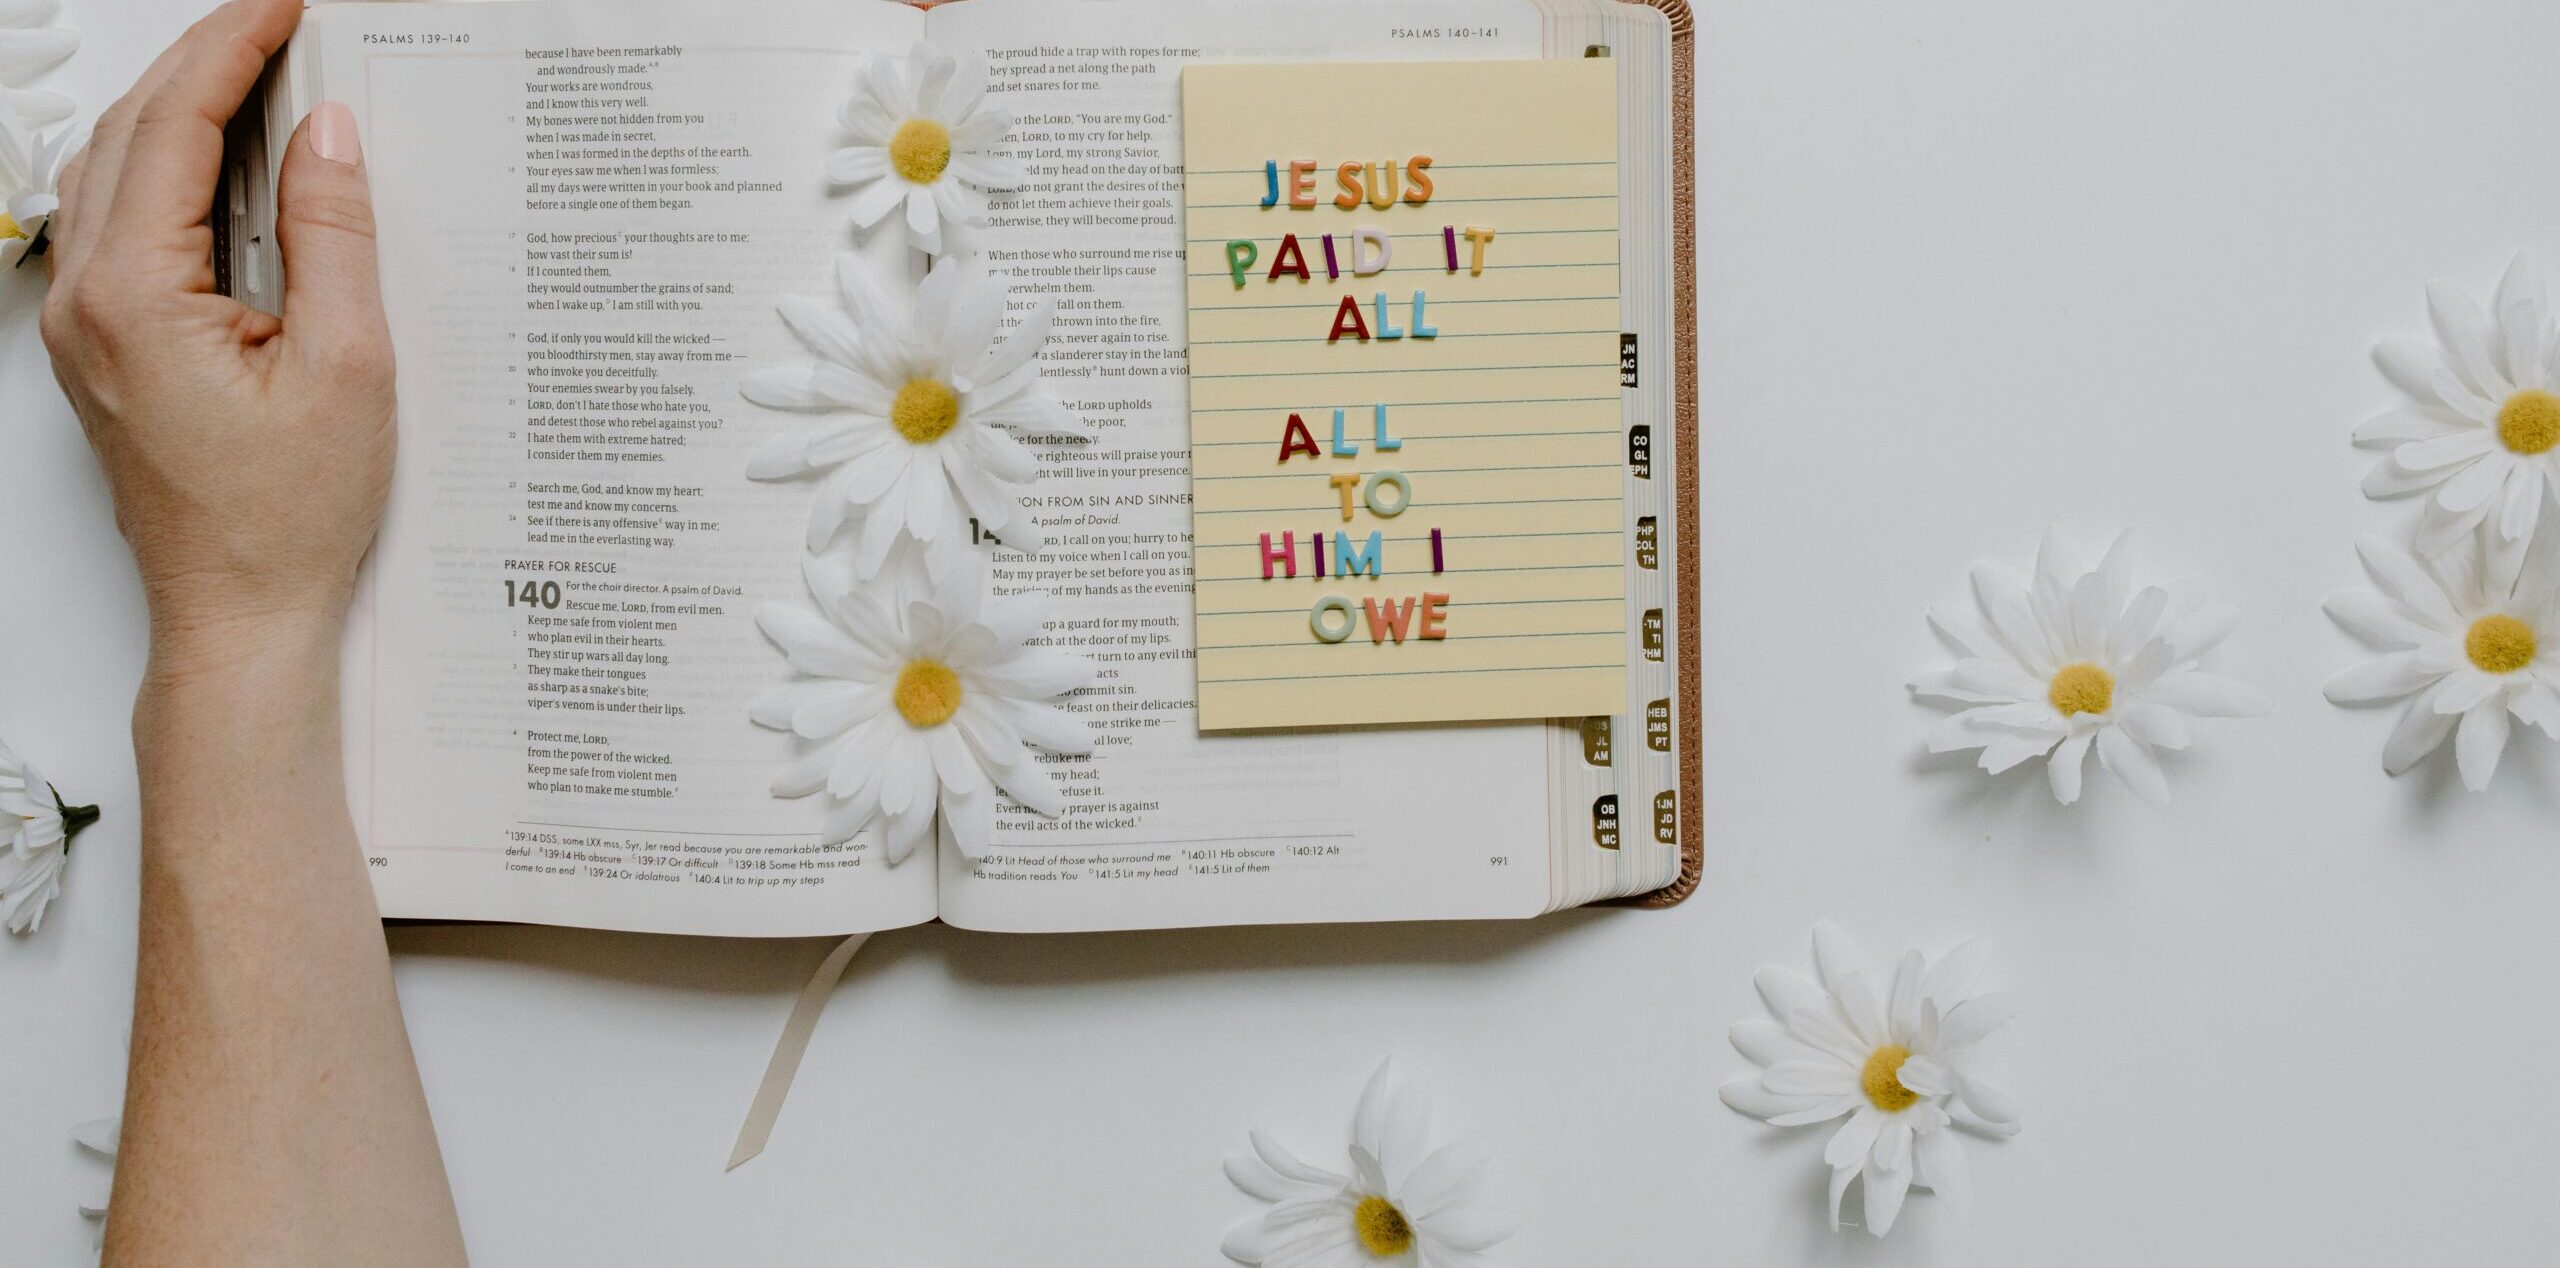 PSALMS 139–140
because I have been remarkably
and wondrously made.A,B
Your works are wondrous,
and I know this very well.
15 My bones were not hidden from you
when I was made in secret,
when I was formed in the depths of the earth.
16 Your eyes saw me when I was formless;
all my days were written in your book and planned
before a single one of them began.
17 God, how precious C your thoughts are to me;
how vast their sum is!
18 If I counted them,
they would outnumber the grains of sand;
when I wake up,D I am still with you.
19 God, if only you would kill the wicked —
you bloodthirsty men, stay away from me —
20 who invoke you deceitfully.
Your enemies swear by you falsely.
21 LORD, don't I hate those who hate you,
and detest those who rebel against you?
22 I hate them with extreme hatred;
I consider them my enemies.
23 Search me, God, and know my heart;
test me and know my concerns.
24 See if there is any offensive E way in me;
lead me in the everlasting way.
PRAYER FOR RESCUE
140 For the choir director. A psalm of David.
Rescue me, LORD, from evil men.
Keep me safe from violent men
2 who plan evil in their hearts.
They stir up wars all day long.
3 They make their tongues
as sharp as a snake's bite;
viper's venom is under their lips.
4 Protect me, LORD,
from the power of the wicked.
Keep me safe from violent men
who plan to make me stumble.F
A 139:14 DSS, some LXX mss, Syr, Jer read because you are remarkable and won-
derful B 139:14 Hb obscure C 139:17 Or difficult D 139:18 Some Hb mss read
I come to an end E 139:24 Or idolatrous F 140:4 Lit to trip up my steps
990
PSALMS 140–141
The proud hide a trap with ropes for me;
hey spread a net along the path
and set snares for me.
to the LORD, "You are my God."
LORD, to my cry for help.
my Lord, my strong Savior,
my head on the day of
8 LORD, do not grant the desires of the
do not let them achieve their goals.
Otherwise, they will become proud.
9 When those who surround me rise up
the trouble their lips cause
overwhelm them.
hot fall on them.
thrown into the fire,
never again to rise.
a slanderer stay in the land
hunt down a
the LORD upholds
the poor,
for the needy.
righteous will praise your
will live in your presence.
FROM SIN AND
A psalm of David.
I call on you; hurry to
Listen to my voice when I call on you.
May my prayer be set before you as
the raising of my hands as the evening
up a guard for my mouth;
at the door of my lips.
turn to any evil
acts
commit sin.
feast on their delicacies.
one strike me —
love;
rebuke me —
my head;
refuse it.
Even prayer is against
the evil acts of the wicked.E
140:9 Lit Head of those who surround me B 140:11 Hb obscure C 140:12 Alt
Hb tradition reads You D 141:5 Lit my head E 141:5 Lit of them
991
JESUS
PAID IT
ALL
ALL
TO
HIM I
OWE
JN
AC
RM
CO
GL
EPH
PHP
COL
TH
TM
TI
PHM
HEB
JMS
PT
1JN
JD
RV
JL
AM
OB
JNH
MC